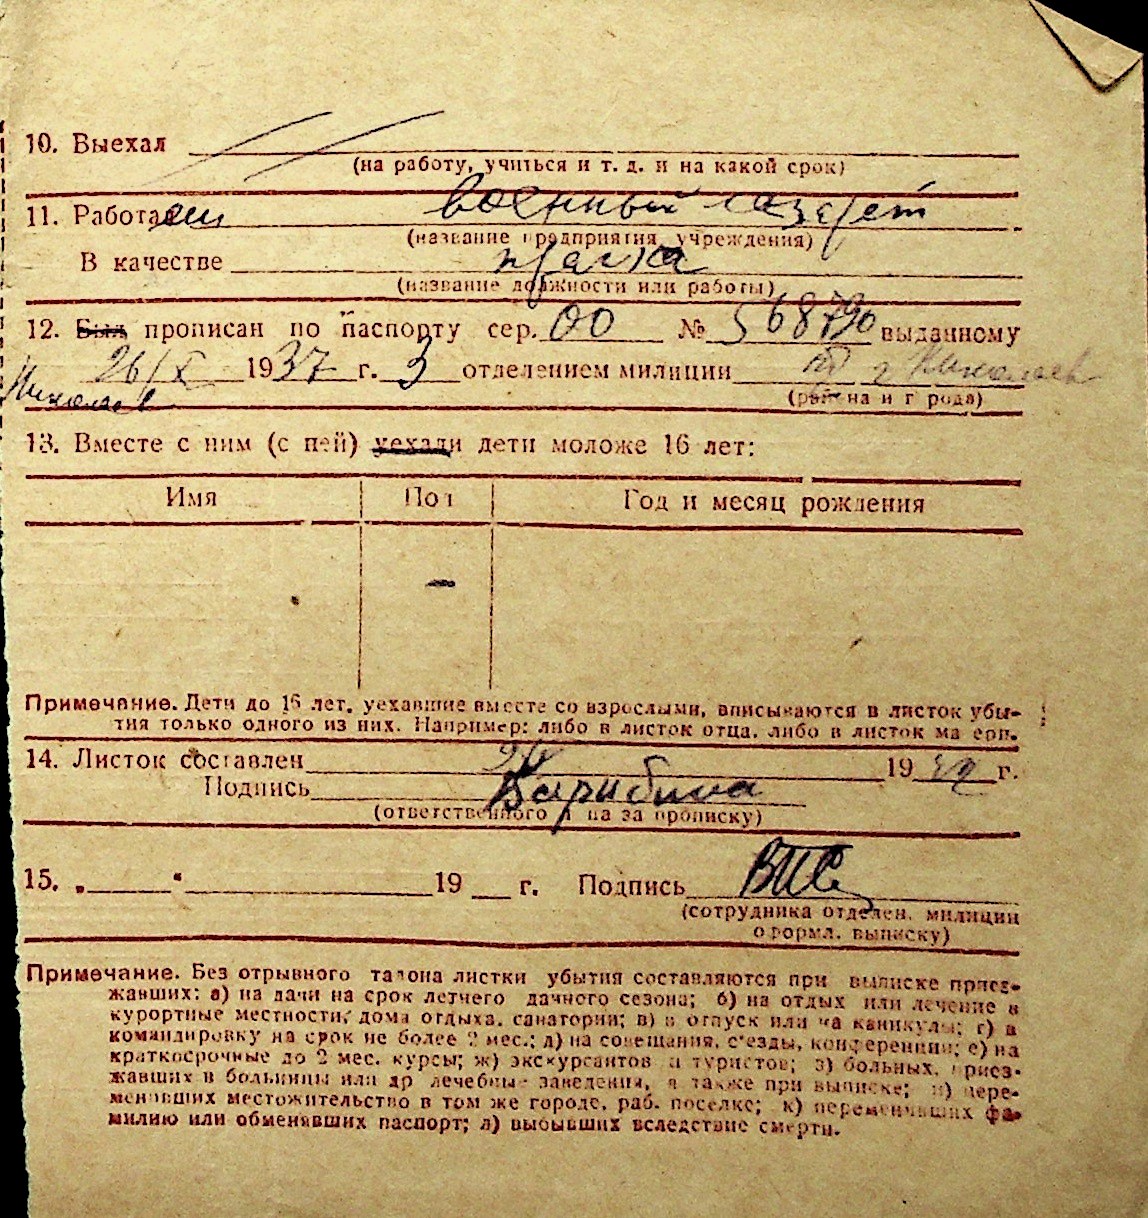 10. Выехал
(на работу, учиться и т. д. и на какой срок)
11. Работа военный лазарет
(название предприятия, учреждения)
В качестве прачка
(название должности или работы)
12. Был прописан по паспорту сер. ОО № 568790 выданному
26/X 1937 г. 3 отделением милиции г Николаев
Николаев
(района и города)
13. Вместе с ним (с ней) уехали дети моложе 16 лет:
Имя Пол Год и месяц рождения
—
Примечание. Дети до 16 лет, уехавшие вместе со взрослыми, вписываются в листок убы-
тия только одного из них. Например: либо в листок отца, либо в листок матери.
14. Листок составлен 19 г.
Подпись
(ответственного лица за прописку)
15. „ “ 19 г. Подпись
(сотрудника отделен. милиции
оформл. выписку)
Примечание. Без отрывного талона листки убытия составляются при выписке приез-
жавших: а) на дачи на срок летнего дачного сезона; б) на отдых или лечение в
курортные местности, дома отдыха, санатории; в) в отпуск или на каникулы; г) в
командировку на срок не более 2 мес.; д) на совещания, с'езды, конференции; е) на
краткосрочные до 2 мес. курсы; ж) экскурсантов и туристов; з) больных, приез-
жавших в больницы или др лечебные заведения, а также при выписке; и) пере-
менивших местожительство в том же городе, раб. поселке; к) переменивших фа-
милию или обменявших паспорт; л) выбывших вследствие смерти.